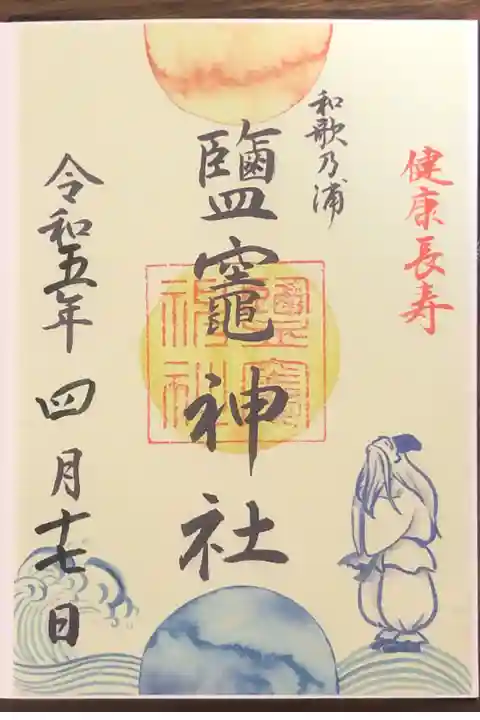 健康長寿
和歌乃浦
鹽竈神社
鹽竈
神社
令和五年四月十七日